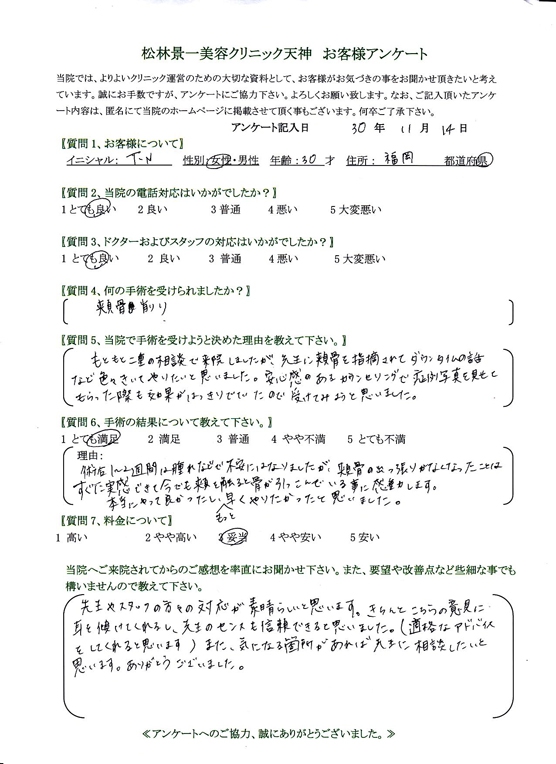 松林景一美容クリニック天神 お客様アンケート
当院では、よりよいクリニック運営のための大切な資料として、お客様がお気づきの事をお聞かせ頂きたいと考え
ています。誠にお手数ですが、アンケートにご協力下さい。よろしくお願い致します。なお、ご記入頂いたアンケ
ート内容は、匿名にて当院のホームページに掲載させて頂く事もございます。何卒ご了承下さい。
アンケート記入日 30 年 11 月 14 日
【質問 1、お客様について】
イニシャル: T-N 性別:女性・男性 年齢:30 才 住所: 福岡 都道府県
【質問 2、当院の電話対応はいかがでしたか?】
1 とても良い 2 良い 3 普通 4 悪い 5 大変悪い
【質問 3、ドクターおよびスタッフの対応はいかがでしたか?】
1 とても良い 2 良い 3 普通 4 悪い 5 大変悪い
【質問 4、何の手術を受けられましたか?】
頬骨削り
【質問 5、当院で手術を受けようと決めた理由を教えて下さい。】
もともと二重の相談で来院しましたが、先生に頬骨を指摘されてダウンタイムの話
など色々きいてやりたいと思いました。安心感のあるカウンセリングで症例写真を見せて
もらった際も効果がはっきりでていたので受けてみようと思いました。
【質問 6、手術の結果について教えて下さい。】
1 とても満足 2 満足 3 普通 4 やや不満 5 とても不満
理由:
術後1〜2週間は腫れなどで不安にはなりましたが、頬骨の出っ張りがなくなったことは
すぐに実感できて今でも頬を触ると骨が引っこんでいる事に感動します。
本当にやって良かったし、もっと早くやりたかったと思いました。
【質問 7、料金について】
1 高い 2 やや高い 3 妥当 4 やや安い 5 安い
当院へご来院されてからのご感想を率直にお聞かせ下さい。また、要望や改善点など些細な事でも
構いませんので教えて下さい。
先生やスタッフの方々の対応が素晴らしいと思います。きちんとこちらの意見に
耳を傾けてくれるし、先生のセンスも信頼できると思いました。(適格なアドバイス
をしてくれると思います) また、気になる箇所があれば先生に相談したいと
思います。ありがとうございました。
≪アンケートへのご協力、誠にありがとうございました。≫